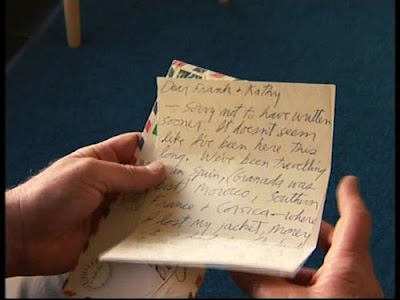 Dear Frank + Kathy
— Sorry not to have written
sooner. It doesn't seem
like I've been here this
long. We've been travelling
in Spain, (Granada was
best) Morocco, Southern
France + Corsica — where
I lost my jacket, money